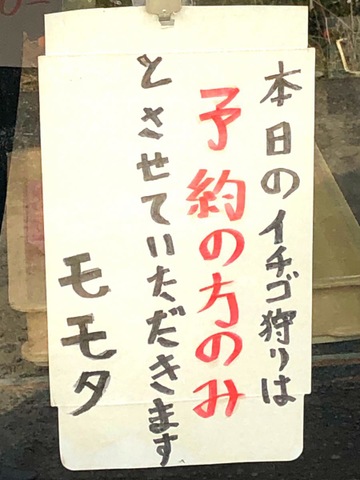 本日のイチゴ狩りは
予約の方のみ
とさせていただきます
モモタ